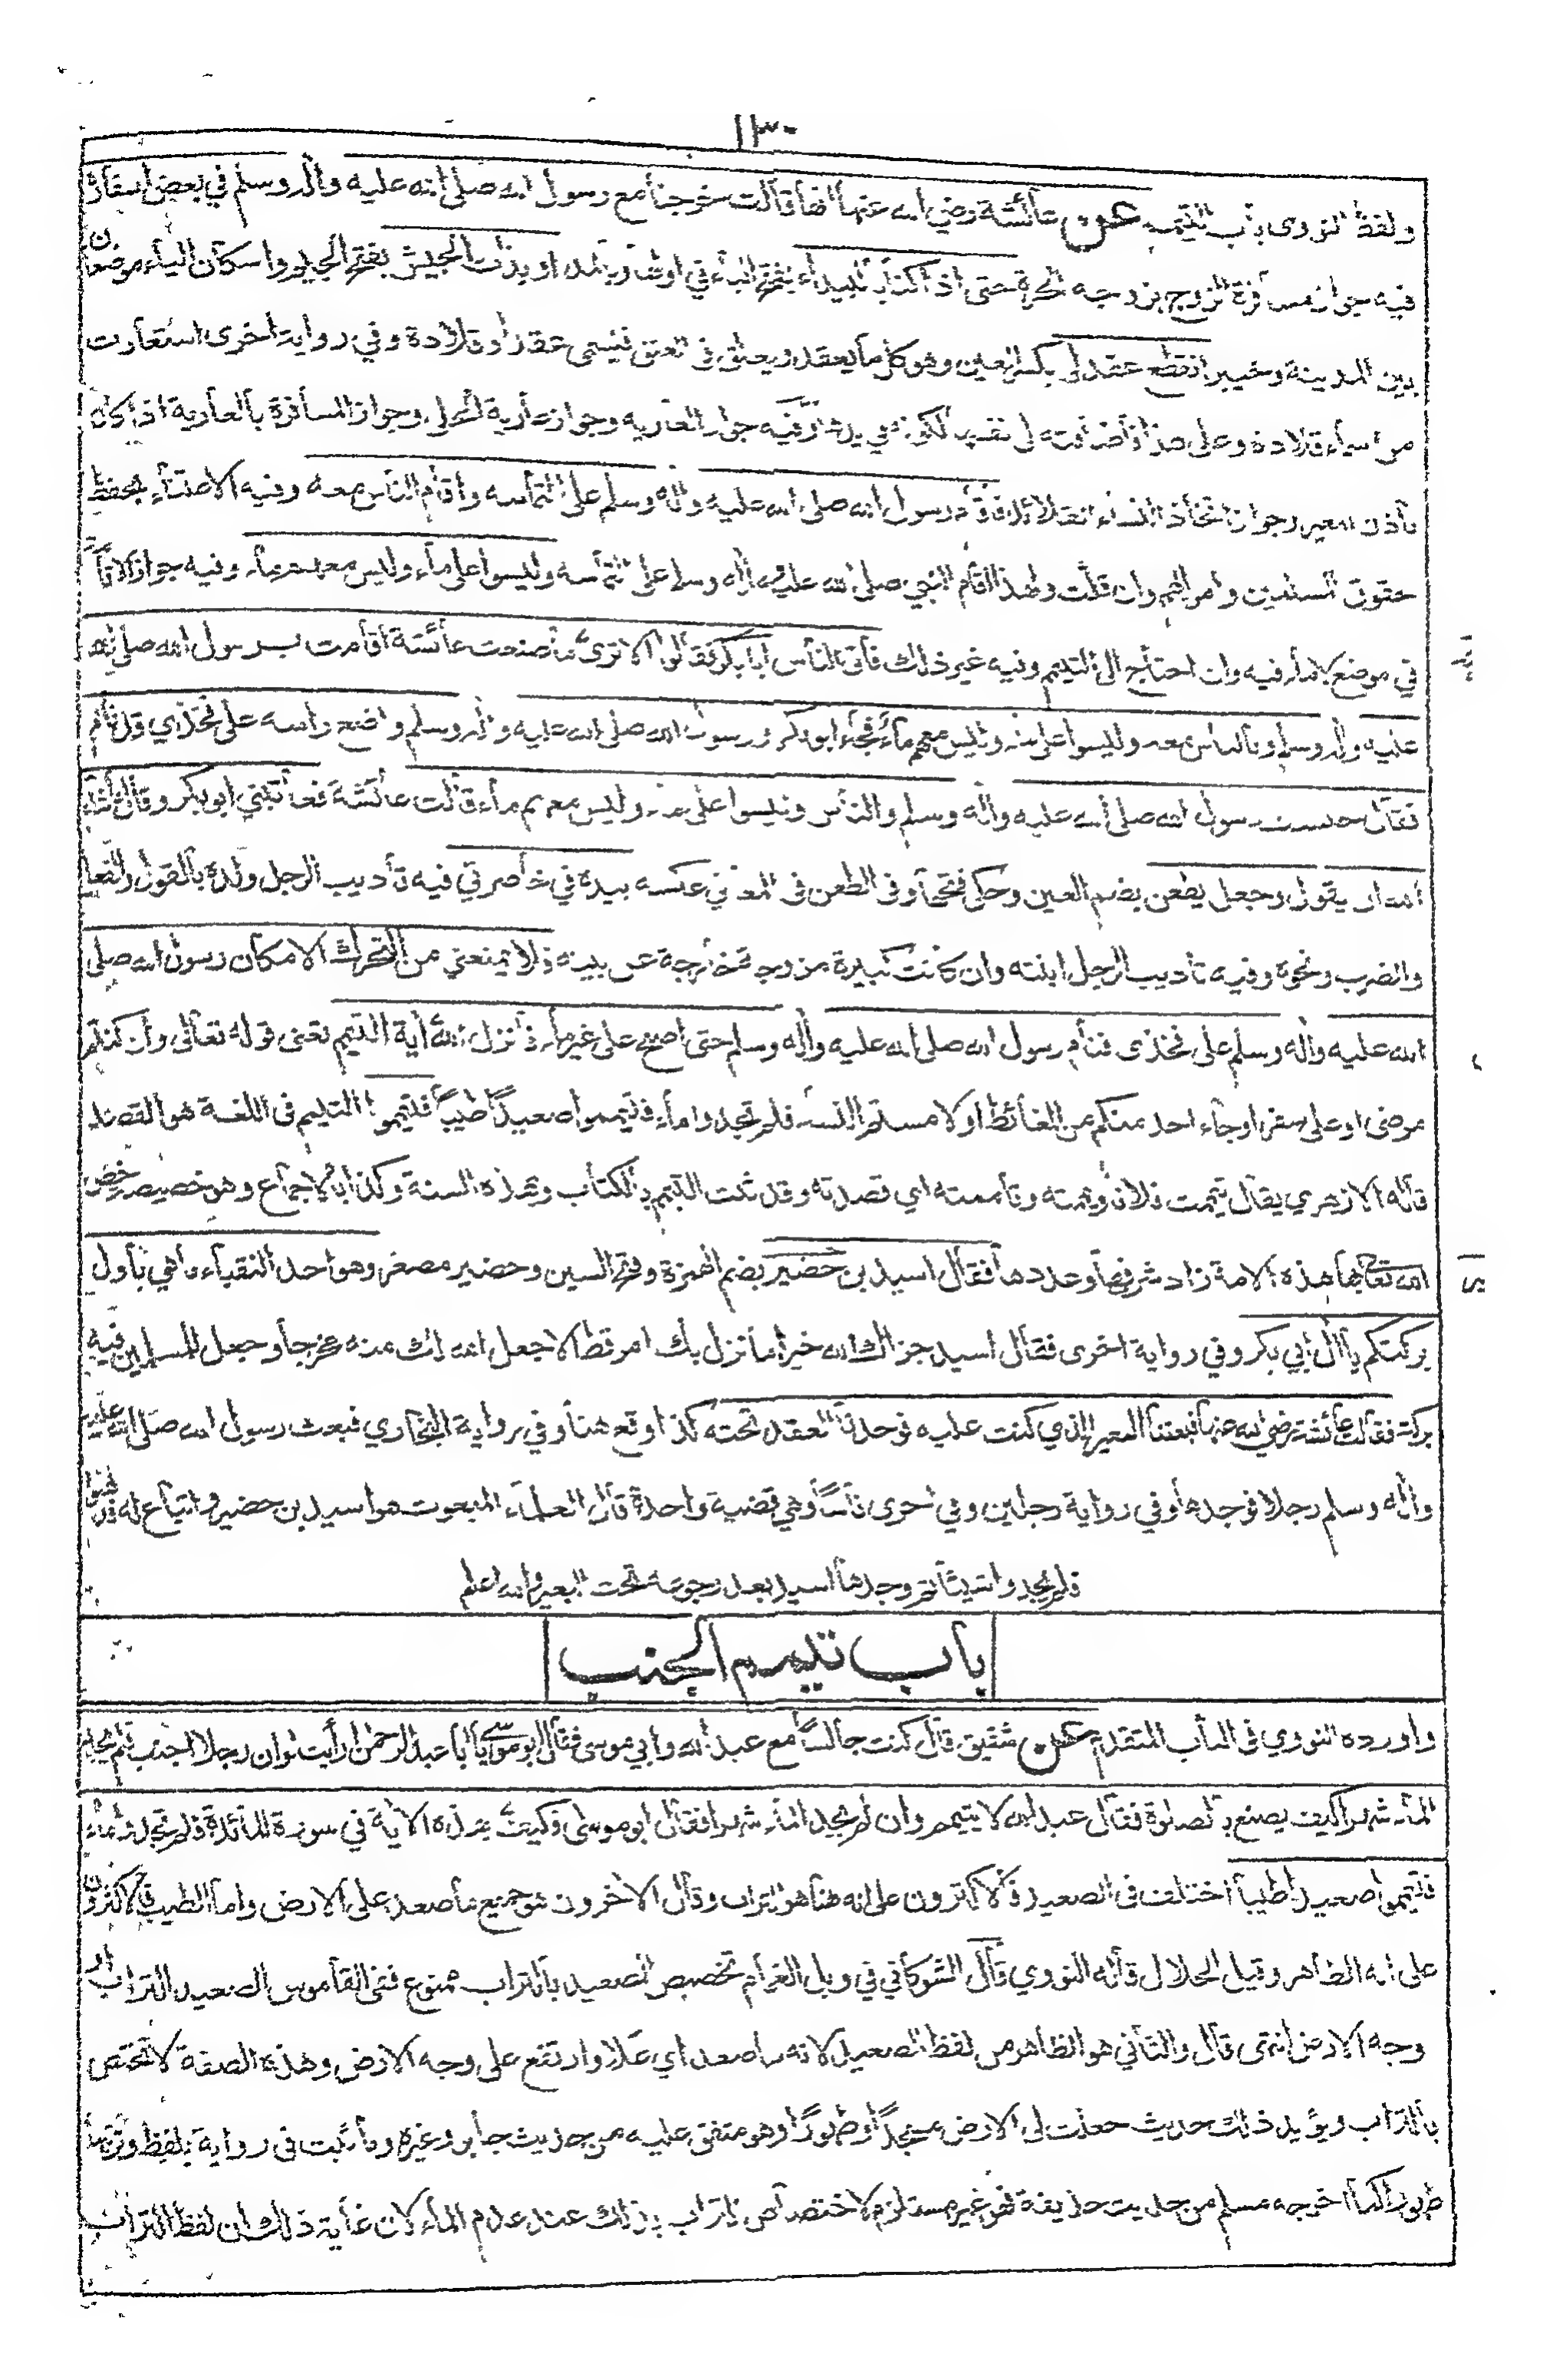 ١٣٠
ولفظ النووى باب التيمم عن عائشة رضي الله عنها انها قالت خرجنا مع رسول الله صلى الله عليه واله وسلم في بعض اسفاره
فيه جواز مسافرة الزوج بزوجته الحرة حتى اذا كنا بالبيداء بفتح الباء في اوله وبالمد او بذات الجيش بفتح الجيم واسكان الياء موضعان
بين المدينة وخيبر انقطع عقد لي بكسر العين وهو كل ما يعقد ويعلق فى العنق فيسمى عقدا وقلادة وفي رواية اخرى استعارت
من اسماء قلادة وعلى هذا فاضافته لى نفسها لكونه في يدها وفيه جواز العارية وجواز عارية الحلي وجواز المسافرة بالعارية اذا كان
باذن المعير وجواز اتخاذ النساء القلائد فاقام رسول الله صلى الله عليه واله وسلم على التماسه واقام الناس معه وفيه الاعتناء بحفظ
حقوق المسلمين واموالهم وان قلت ولهذا اقام النبي صلى الله عليه واله وسلم على التماسه وليسوا على ماء وليس معهم ماء وفيه جواز الاقامة
في موضع لا ماء فيه وان احتاج الى التيمم وفيه غير ذلك فاتى الناس ابا بكر فقالوا الا ترى ما صنعت عائشة اقامت برسول الله صلى الله
عليه واله وسلم وبالناس معه وليسوا على ماء وليس معهم ماء فجاء ابو بكر ورسول الله صلى الله عليه واله وسلم واضع راسه على فخذي قد نام
فقال حبست رسول الله صلى الله عليه واله وسلم والناس وليسوا على ماء وليس معهم ماء قالت عائشة فعاتبني ابو بكر وقال ما شاء
الله ان يقول وجعل يطعن بضم العين وحكي فتحها وفى الطعن فى المعاني عكسه بيده في خاصرتي فيه تأديب الرجل ولده بالقول والفعل
والضرب ونحوه وفيه تاديب الرجل ابنته وان كانت كبيرة مزوجة خارجة عن بيته فلا يمنعني من التحرك الا مكان رسول الله صلى
الله عليه واله وسلم على فخذى فنام رسول الله صلى الله عليه واله وسلم حتى اصبح على غير ماء فانزل الله أية التيمم تعنى قوله تعالى وان كنتم
مرضى او على سفر او جاء احد منكم من الغائط او لامستم النساء فلم تجدوا ماء فتيمموا صعيدًا طيبًا فتيمموا التيمم فى اللغة هو القصد
قاله الازهري يقال تيممت فلانا ويممته وتأممته اي قصدته وقد ثبت التيمم بالكتاب وبهذه السنة وكذا بالاجماع وهو خصيصة خص
الله تعالى بها هذه الامة زاد شرفها وعددها فقال اسيد بن حضير بضم الهمزة وفتح السين وحضير مصغر وهو احد النقباء ما هي باول
بركتكم يا آل ابي بكر وفي رواية اخرى فقال اسيد جزاك الله خيرا ما نزل بك امر قط الا جعل الله لك منه مخرجا وجعل للمسلمين فيه
بركة فقالت عائشة رضي الله عنها فبعثنا البعير الذي كنت عليه فوجدنا العقد تحته كذا وقع هنا وفي رواية البخاري فبعث رسول الله صلى الله عليه
واله وسلم رجلا فوجدها وفي رواية رجلين وفي اخرى ناسًا وهي قضية واحدة قال العلماء المبعوث هو اسيد بن حضير واتباع له فذهبوا
فلم يجدوا شيئا ثم وجدها اسيد بعد رجوعه تحت البعير والله اعلم
باب تيمم الجنب
واورده النووي فى الباب المتقدم عن شقيق قال كنت جالسًا مع عبد الله وابي موسى فقال ابو موسى يا ابا عبد الرحمن ارأيت لو ان رجلا اجنب فلم يجد
الماء شهرا كيف يصنع بالصلوة فقال عبد الله لا يتيمم وان لم يجد الماء شهرا فقال ابو موسى فكيف بهذه الاية في سورة المائدة فلم تجدوا ماء
فتيمموا صعيدا طيبا اختلف فى الصعيد فالاكثرون على انه هنا هو التراب وقال الاخرون هو جميع ما صعد على الارض واما الطيب فالاكثرون
على انه الطاهر وقيل الحلال قاله النووي قال الشوكاني في وبل الغمام تخصيص الصعيد بالتراب ممنوع ففى القاموس الصعيد التراب او
وجه الارض انتهى قال والثاني هو الظاهر من لفظ الصعيد لانه ما صعد اي علا وارتفع على وجه الارض وهذه الصفة لا تختص
بالتراب ويؤيد ذلك حديث جعلت لى الارض مسجدًا وطهورًا وهو متفق عليه من حديث جابر وغيره وما ثبت فى رواية بلفظ وتربتها
طهورا كما اخرجه مسلم من حديث حذيفة فهو غير مستلزم لاختصاص التراب بذلك عند عدم الماء لان غاية ذلك ان لفظ التراب